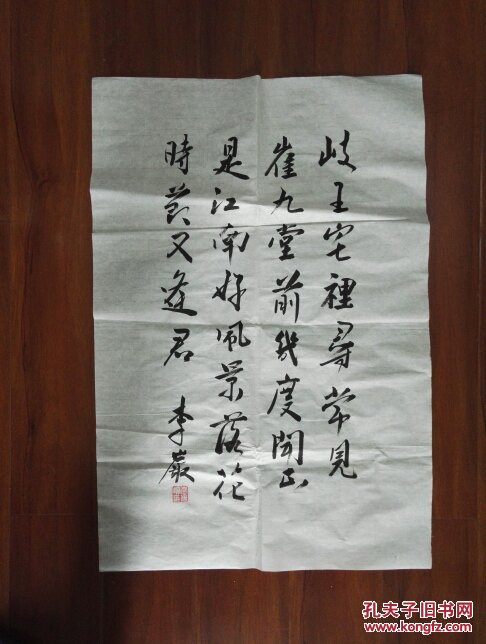 岐王宅裡尋常見
崔九堂前幾度聞正
是江南好風景落花
時節又逢君
李巖
孔夫子旧书网
www.kongfz.com